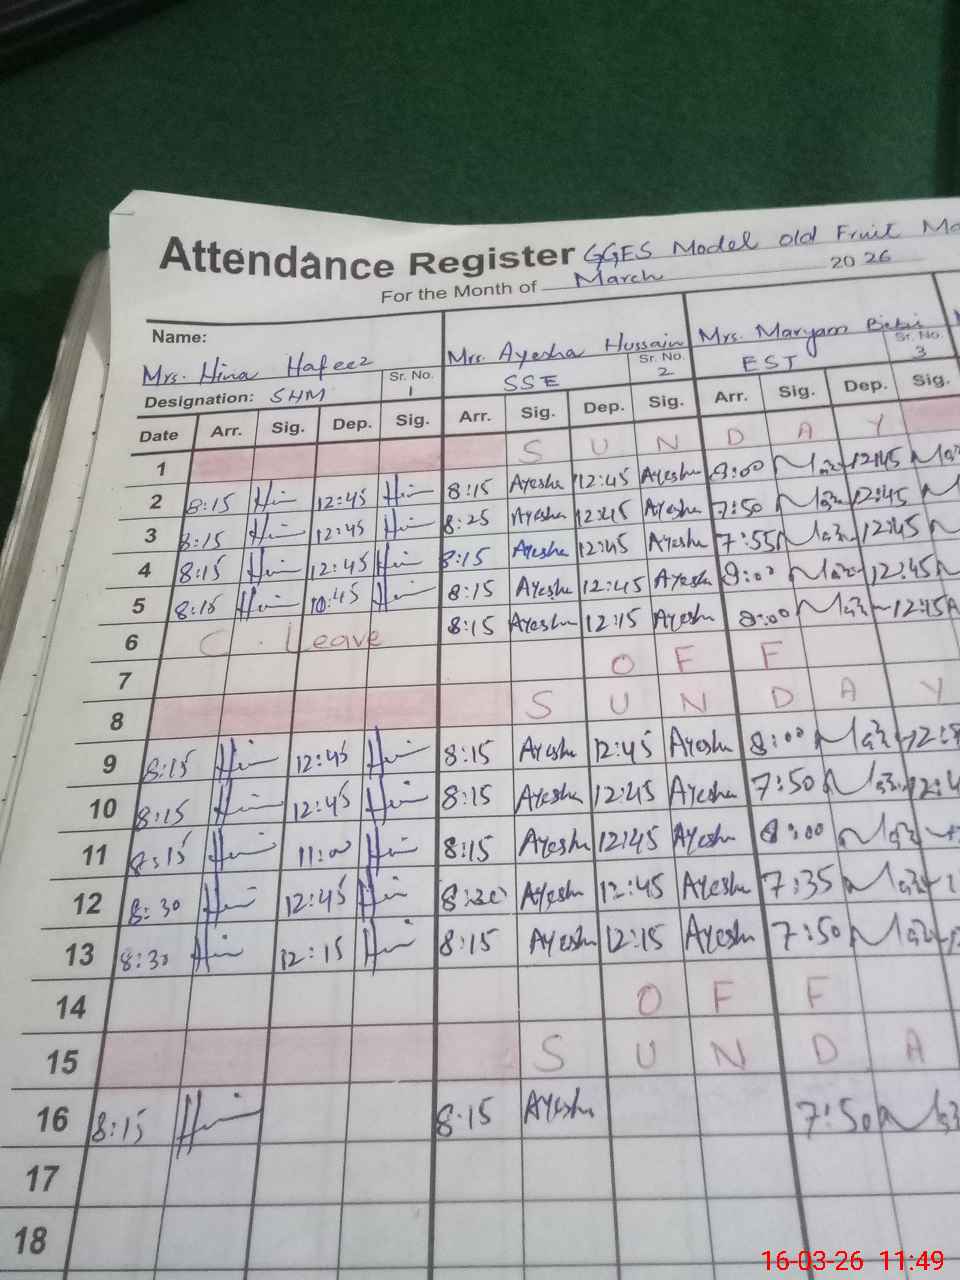 Attendance Register GGES Model old Fruit
For the Month of March 2026
Name: Mrs. Hina Hafeez Mrs. Ayesha Hussain Mrs. Maryam Bibi
Designation: SHM Sr. No. 1 SSE Sr. No. 2 EST Sr. No. 3
Date Arr. Sig. Dep. Sig. Arr. Sig. Dep. Sig. Arr. Sig. Dep. Sig.
1 S U N D A Y
2 8:15 12:45 8:15 Ayesha 12:45 Ayesha 8:00 12:45
3 8:15 12:45 8:25 Ayesha 12:45 Ayesha 7:50 12:45
4 8:15 12:45 8:15 Ayesha 12:45 Ayesha 7:55 12:45
5 8:15 10:45 8:15 Ayesha 12:45 Ayesha 8:00 12:45
6 C. Leave 8:15 Ayesha 12:15 Ayesha 8:00 12:15
7 O F F
8 S U N D A Y
9 8:15 12:45 8:15 Ayesha 12:45 Ayesha 8:00
10 8:15 12:45 8:15 Ayesha 12:45 Ayesha 7:50
11 8:15 11:00 8:15 Ayesha 12:45 Ayesha 8:00
12 8:30 12:45 8:30 Ayesha 12:45 Ayesha 7:35
13 8:30 12:15 8:15 Ayesha 12:15 Ayesha 7:50
14 O F F
15 S U N D A
16 8:15 8:15 Ayesha 7:50
17
18
16-03-26 11:49